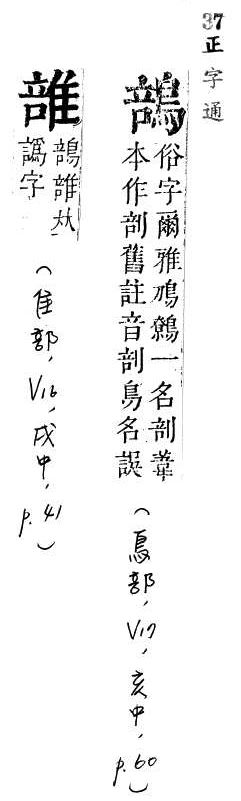 37 正字通
䳝
俗字爾雅鳭鷯一名剖葦
本作剖舊註音剖鳥名誤
(鳥部, V17, 亥中, p.60)
譌字
(隹部, V16, 戌中, p.41)